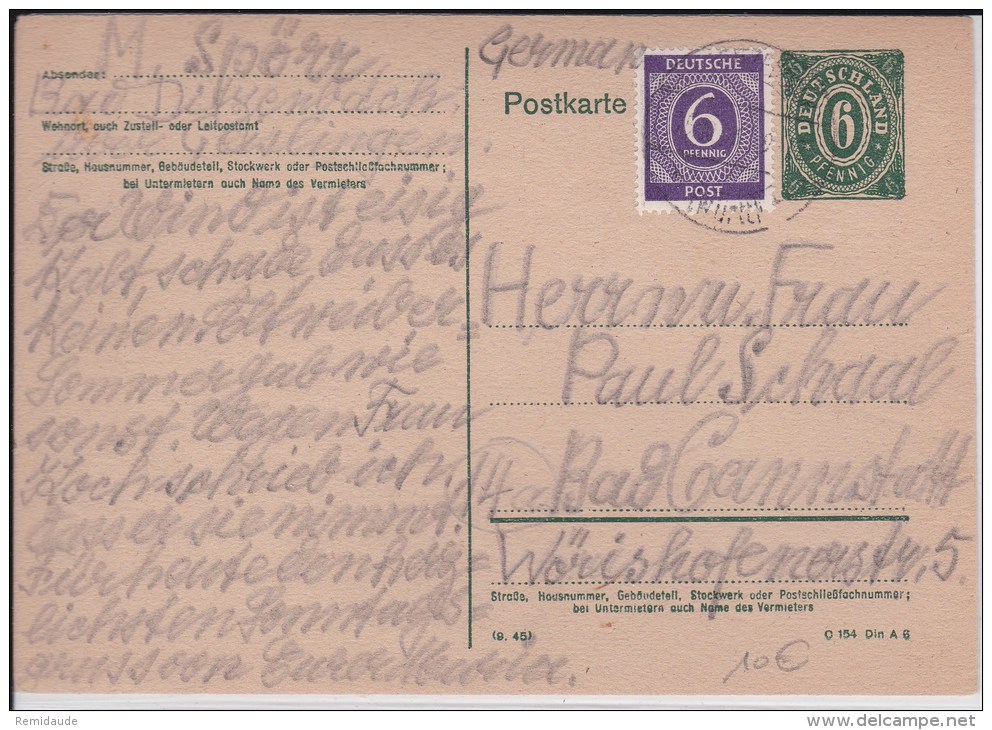 M. Spörr
Absender:
Bad
Wohnort, auch Zustell- oder Leitpostamt
Straße, Hausnummer, Gebäudeteil, Stockwerk oder Postschließfachnummer;
bei Untermietern auch Name des Vermieters
Der Wind ist eisig
kalt, schade dass es
keinen Altweiber-
sommer gab wie
sonst. Wegen Frau
Koch schrieb ich.
sie nimmt.
Für heute den herz-
lichsten Sonntags-
gruss von Eurer
German
Postkarte
DEUTSCHE
6
PFENNIG
POST
6 6
DEUTSCHLAND
6
PFENNIG
6 6
Herrn u. Frau
Paul Schaal
Bad Cannstatt
Wörishofenerstr. 5.
Straße, Hausnummer, Gebäudeteil, Stockwerk oder Postschließfachnummer;
bei Untermietern auch Name des Vermieters
(9. 45)
C 154 Din A 6
10€
Remidaude
www.delcampe.net